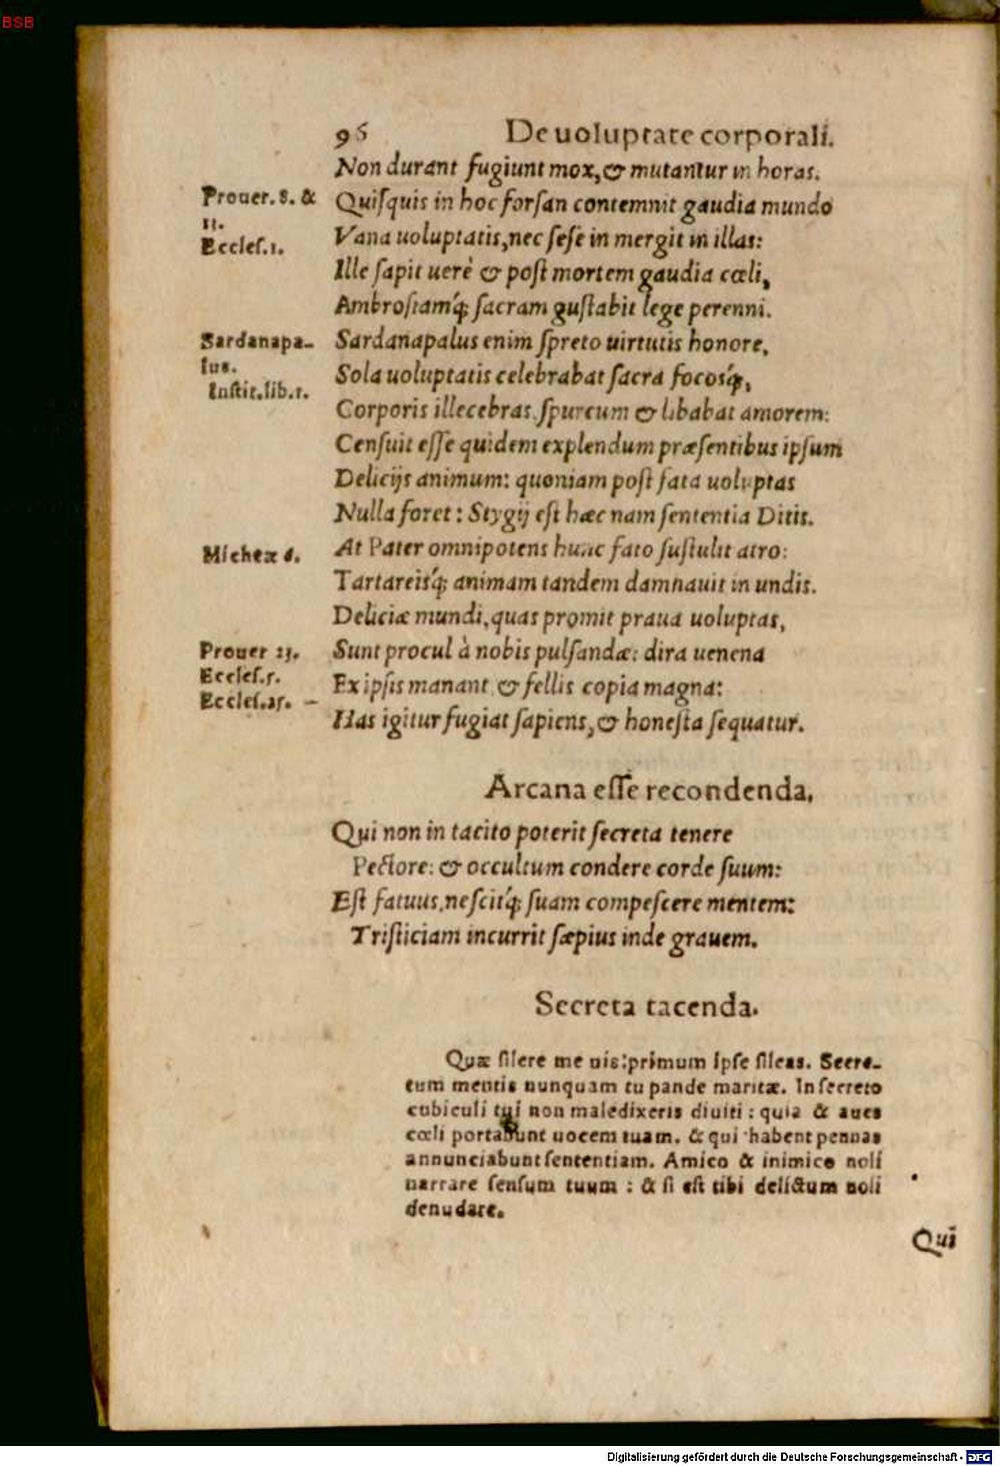 BSB
96 De uoluptate corporali.
Non durant fugiunt mox, & mutantur in horas.
Prouer. 8. &
11.
Eccles. 1.
Quiſquis in hoc forſan contemnit gaudia mundo
Vana uoluptatis, nec ſeſe in mergit in illas:
Ille ſapit uerè & poſt mortem gaudia cœli,
Ambroſiamq́; ſacram guſtabit lege perenni.
Sardanapa-
lus.
Inſtit. lib. 1.
Sardanapalus enim ſpreto uirtutis honore,
Sola uoluptatis celebrabat ſacra focosq́;,
Corporis illecebras, ſpurcum & libabat amorem:
Cenſuit eſſe quidem explendum præſentibus ipſum
Delicijs animum: quoniam poſt fata uoluptas
Nulla foret: Stygij eſt hæc nam ſententia Ditis.
Micheæ 6.
At Pater omnipotens hunc fato ſuſtulit atro:
Tartareisq́; animam tandem damnauit in undis.
Deliciæ mundi, quas promit praua uoluptas,
Prouer 23.
Eccleſ. 5.
Eccleſ. 25. –
Sunt procul à nobis pulſandæ: dira uenena
Ex ipſis manant & fellis copia magna:
Has igitur fugiat ſapiens, & honeſta ſequatur.
Arcana eſſe recondenda.
Qui non in tacito poterit ſecreta tenere
Pectore: & occultum condere corde ſuum:
Eſt fatuus, neſcitq́; ſuam compeſcere mentem:
Triſticiam incurrit ſæpius inde grauem.
Secreta tacenda.
Quæ ſilere me uis: primum ipſe ſileas. Secre-
tum mentis nunquam tu pande maritæ. In ſecreto
cubiculi tui non maledixeris diuiti: quia & aues
cœli portabunt uocem tuam. & qui habent pennas
annunciabunt ſententiam. Amico & inimico noli
narrare ſenſum tuum: & ſi eſt tibi delictum noli
denudare.
Qui
Digitalisierung gefördert durch die Deutsche Forschungsgemeinschaft - DFG